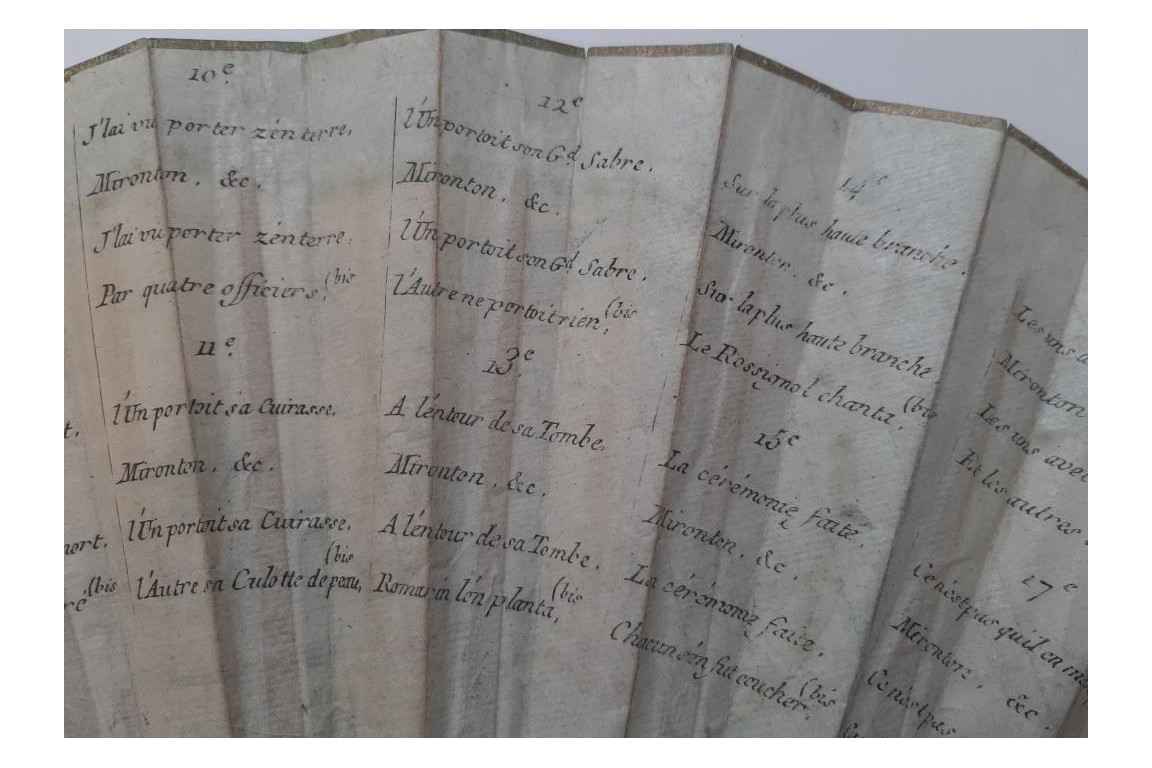 t.
mort.
re (bis
10e
J'lai vu porter zén terre,
Mironton, &c.
J'lai vu porter zénterre,
Par quatre officiers, (bis
11e
l'Un portoit sa Cuirasse,
Mironton, &c.
l'Un portoit sa Cuirasse,
l'Autre sa Culotte de peau, (bis
12e
l'Un portoit son Gd Sabre.
Mironton, &c.
l'Un portoit son Gd Sabre.
l'Autre ne portoit rien, (bis
13e
A léntour de sa Tombe,
Mironton, &c.
A léntour de sa Tombe,
Romarin lén planta, (bis
14e
Sur la plus haute branche.
Mironton, &c.
Sur la plus haute branche.
Le Rossignol chanta. (bis
15e
La cérémonie faite,
Mironton, &c.
La cérémonie faite,
Chacun s'én fut coucher. (bis
Les uns a
Mironton
Les uns avec
Et les autres
17e
Ce nést pas qu'il en m
Mironton, &c.
Ce nést pas